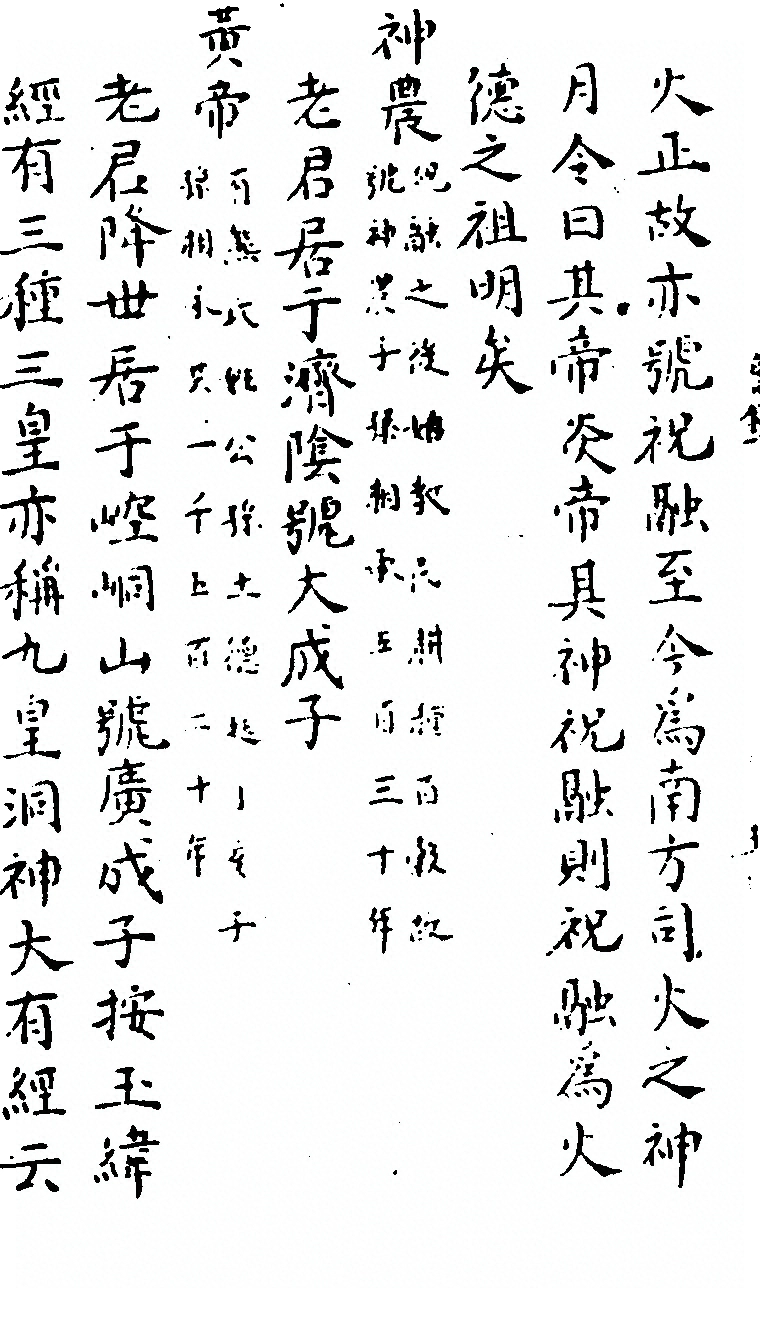 火正故亦號祝融至今爲南方司火之神
月令曰其帝炎帝其神祝融則祝融爲火
德之祖明矣
神農祝融之後始教民耕種百穀故
號神農子孫相承五百三十年
老君居于濟陰號大成子
黃帝有熊氏姓公孫土德
孫相承共一千五百二十年
老君降世居于崆峒山號廣成子按玉緯
經有三種三皇亦稱九皇洞神大有經云